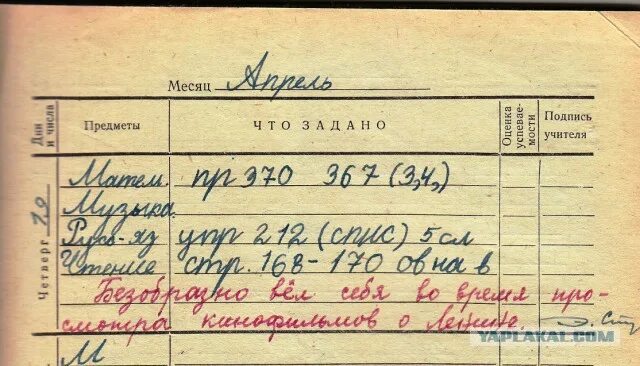 Месяц Апрель
Дни и числа Предметы ЧТО ЗАДАНО Оценка успеваемости Подпись учителя
Четверг
Матем. пр 370 367 (3,4,)
Музыка.
Русс-яз упр 212 (спис) 5 сл
Чтение стр. 168-170 ов на в
Безобразно вёл себя во время про-
смотра кинофильмов о Ленине.
М
YAPLAKAL.COM